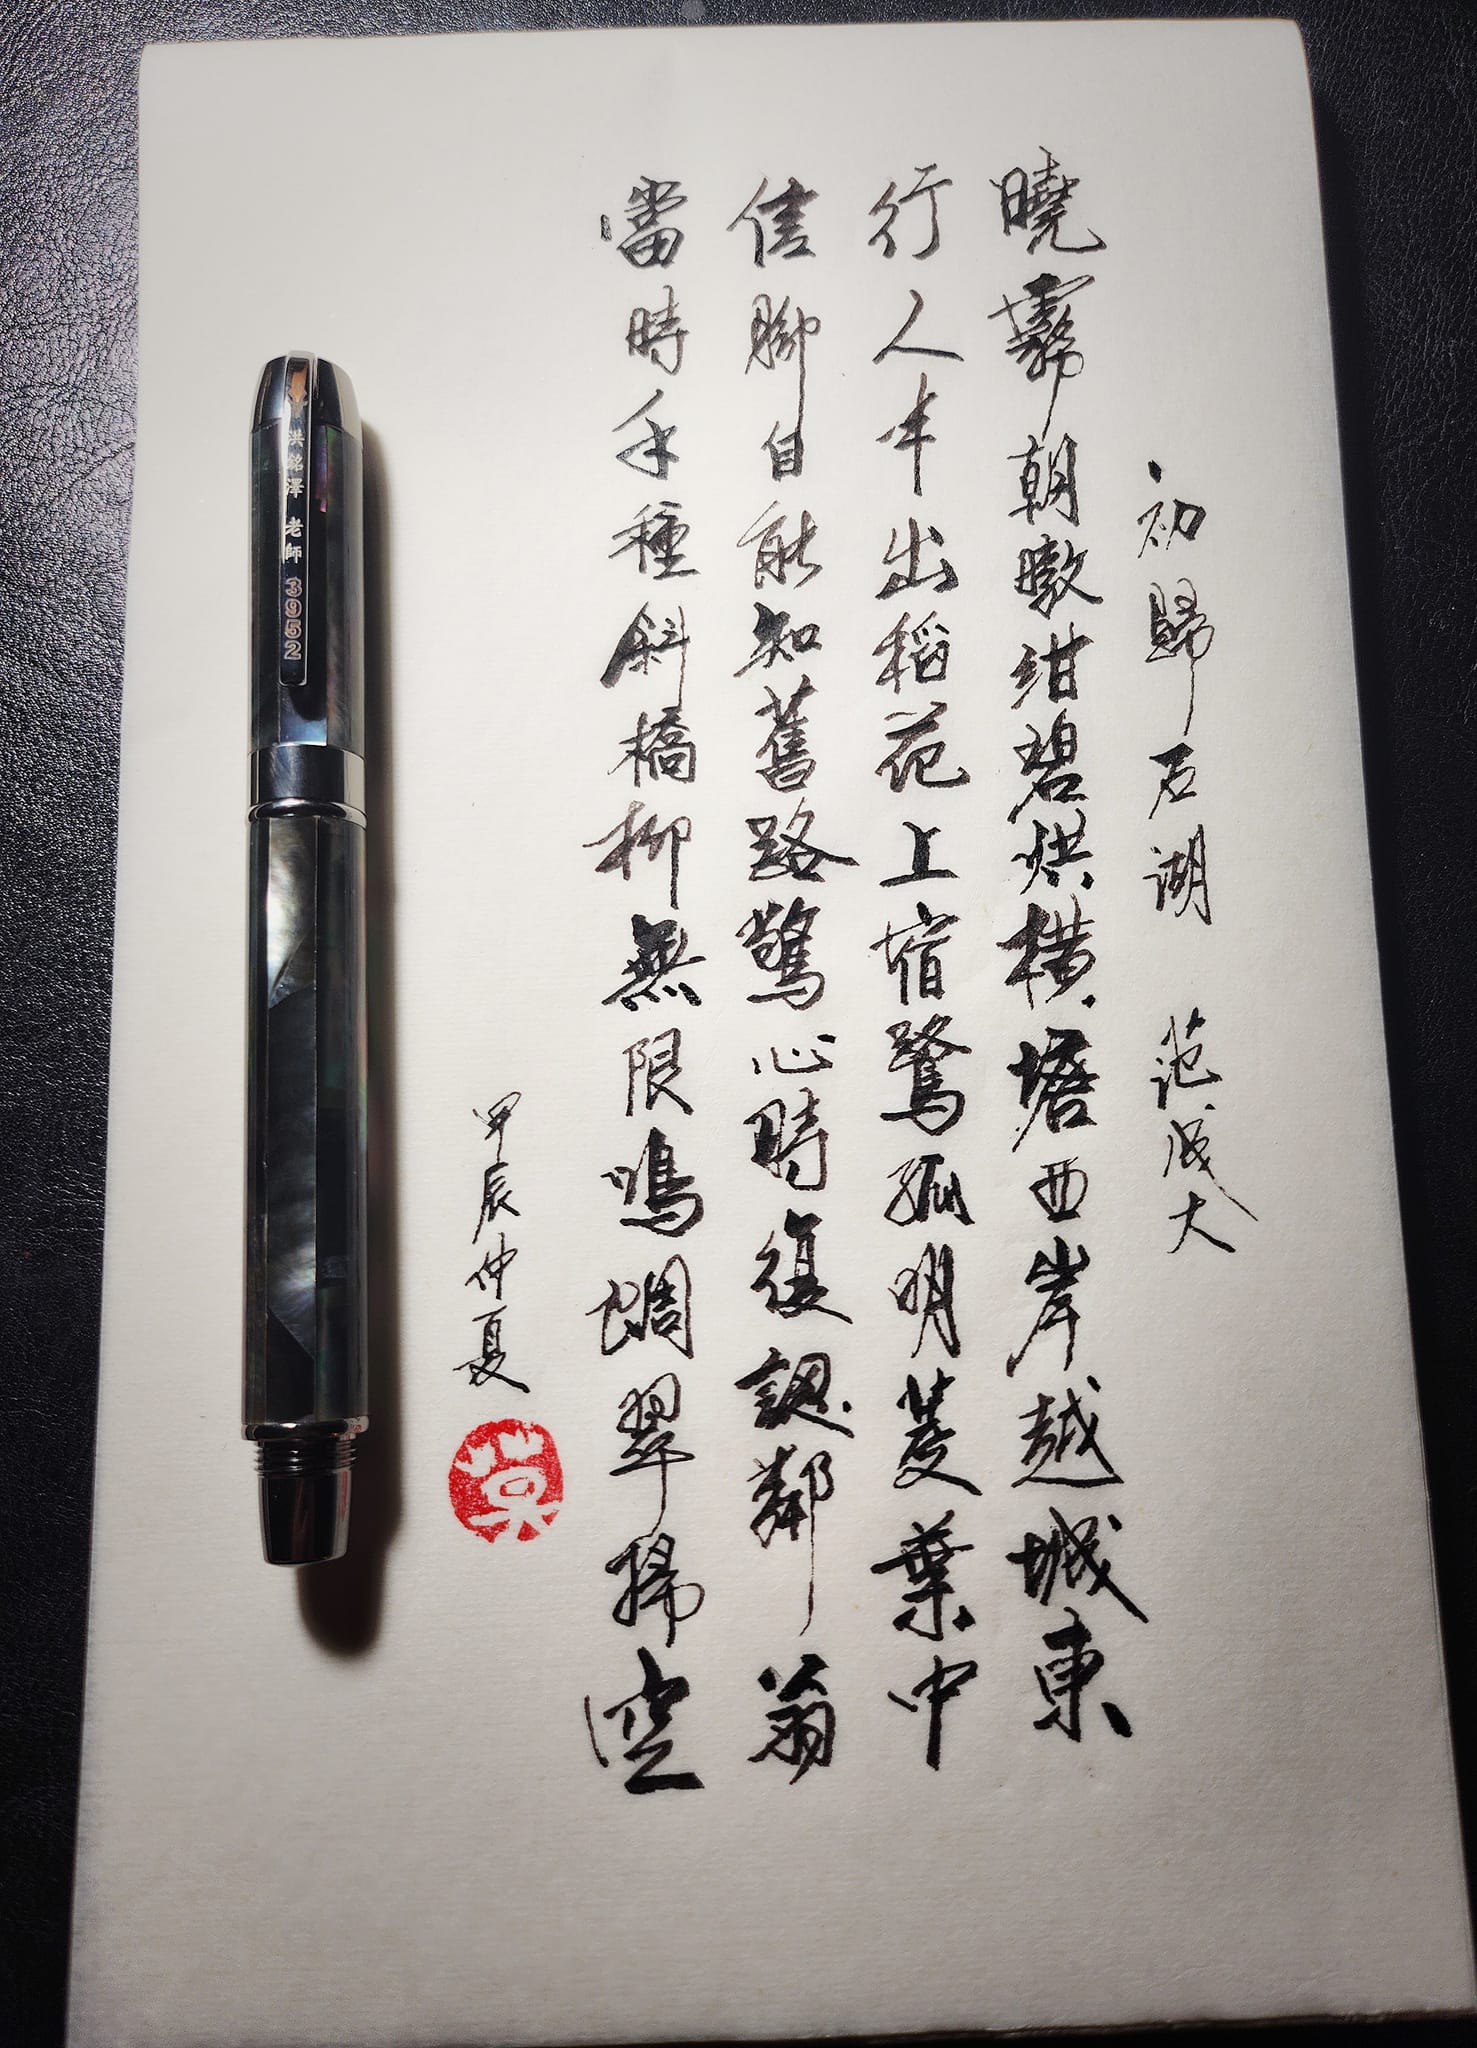 初歸石湖 范成大
曉霧朝暾紺碧烘橫塘西岸越城東
行人半出稻花上宿鷺孤明菱葉中
信腳自能知舊路驚心時復認鄰翁
當時手種斜橋柳無限鳴蜩翠掃空
甲辰仲夏
洪銘澤 老師 3952